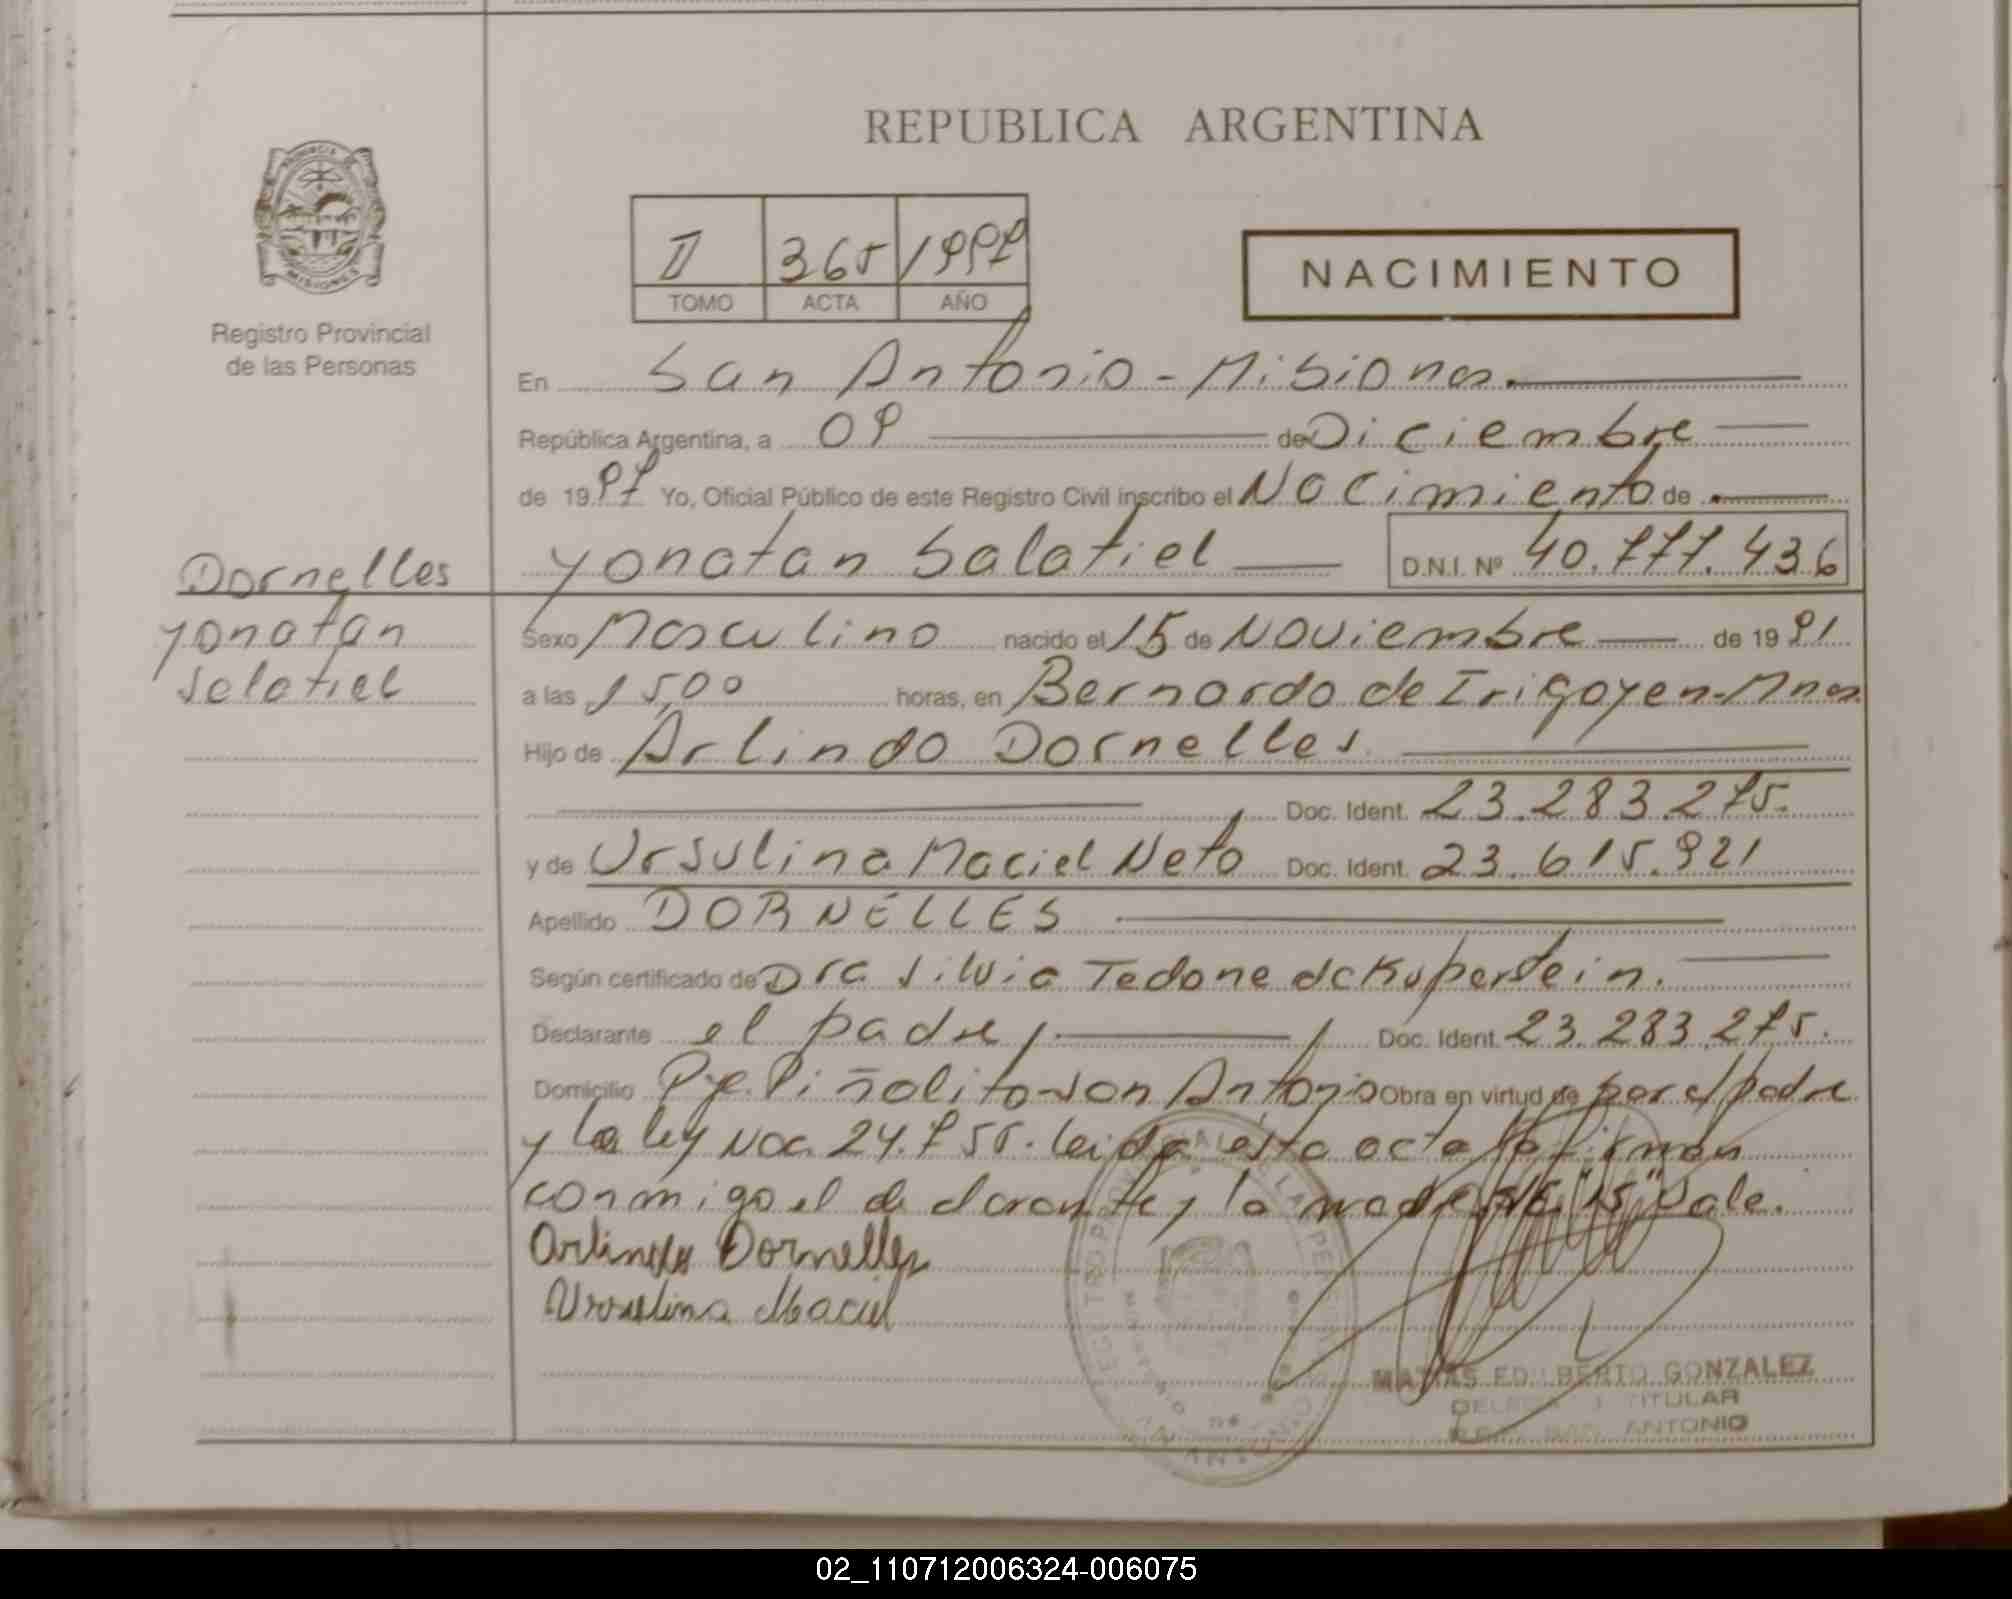 REPUBLICA ARGENTINA
PROVINCIA DE
MISIONES
Registro Provincial
de las Personas
II 365 1997
TOMO ACTA AÑO
NACIMIENTO
En San Antonio - Misiones.
República Argentina, a 09 de Diciembre
de 1997 Yo, Oficial Público de este Registro Civil inscribo el Nacimiento de
Yonatan Salatiel D.N.I. Nº 40.777.436
Dornelles
Yonatan
Salatiel
Sexo Masculino nacido el 15 de Noviembre de 1991
a las 15,00 horas, en Bernardo de Irigoyen-Mnes.
Hijo de Arlindo Dornelles
Doc. Ident. 23.283.275.
y de Ursulina Maciel Neto Doc. Ident. 23.615.921
Apellido DORNELLES
Según certificado de Dra Silvia Tedone de Kuperstein.
Declarante el padre, Doc. Ident. 23.283.275.
Domicilio Pje. Piñalito-San Antonio Obra en virtud de por el padre
y la ley Nac. 24.755. leida esta acta la firman
conmigo el declarante y la madre "15" Vale.
Arlindo Dornelles
Ursulina Maciel
MATIAS EDILBERTO GONZALEZ
TITULAR
SAN ANTONIO
02_110712006324-006075